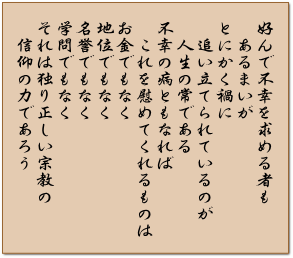 好んで不幸を求める者も
あるまいが
とにかく禍に
追い立てられているのが
人生の常である
不幸の病ともなれば
これを慰めてくれるものは
お金でもなく
地位でもなく
名誉でもなく
学問でもなく
それは独り正しい宗教の
信仰の力であろう